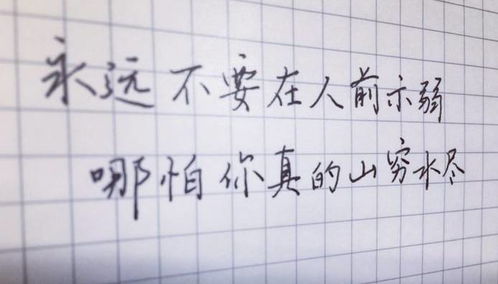 永远不要在人前示弱
哪怕你真的山穷水尽